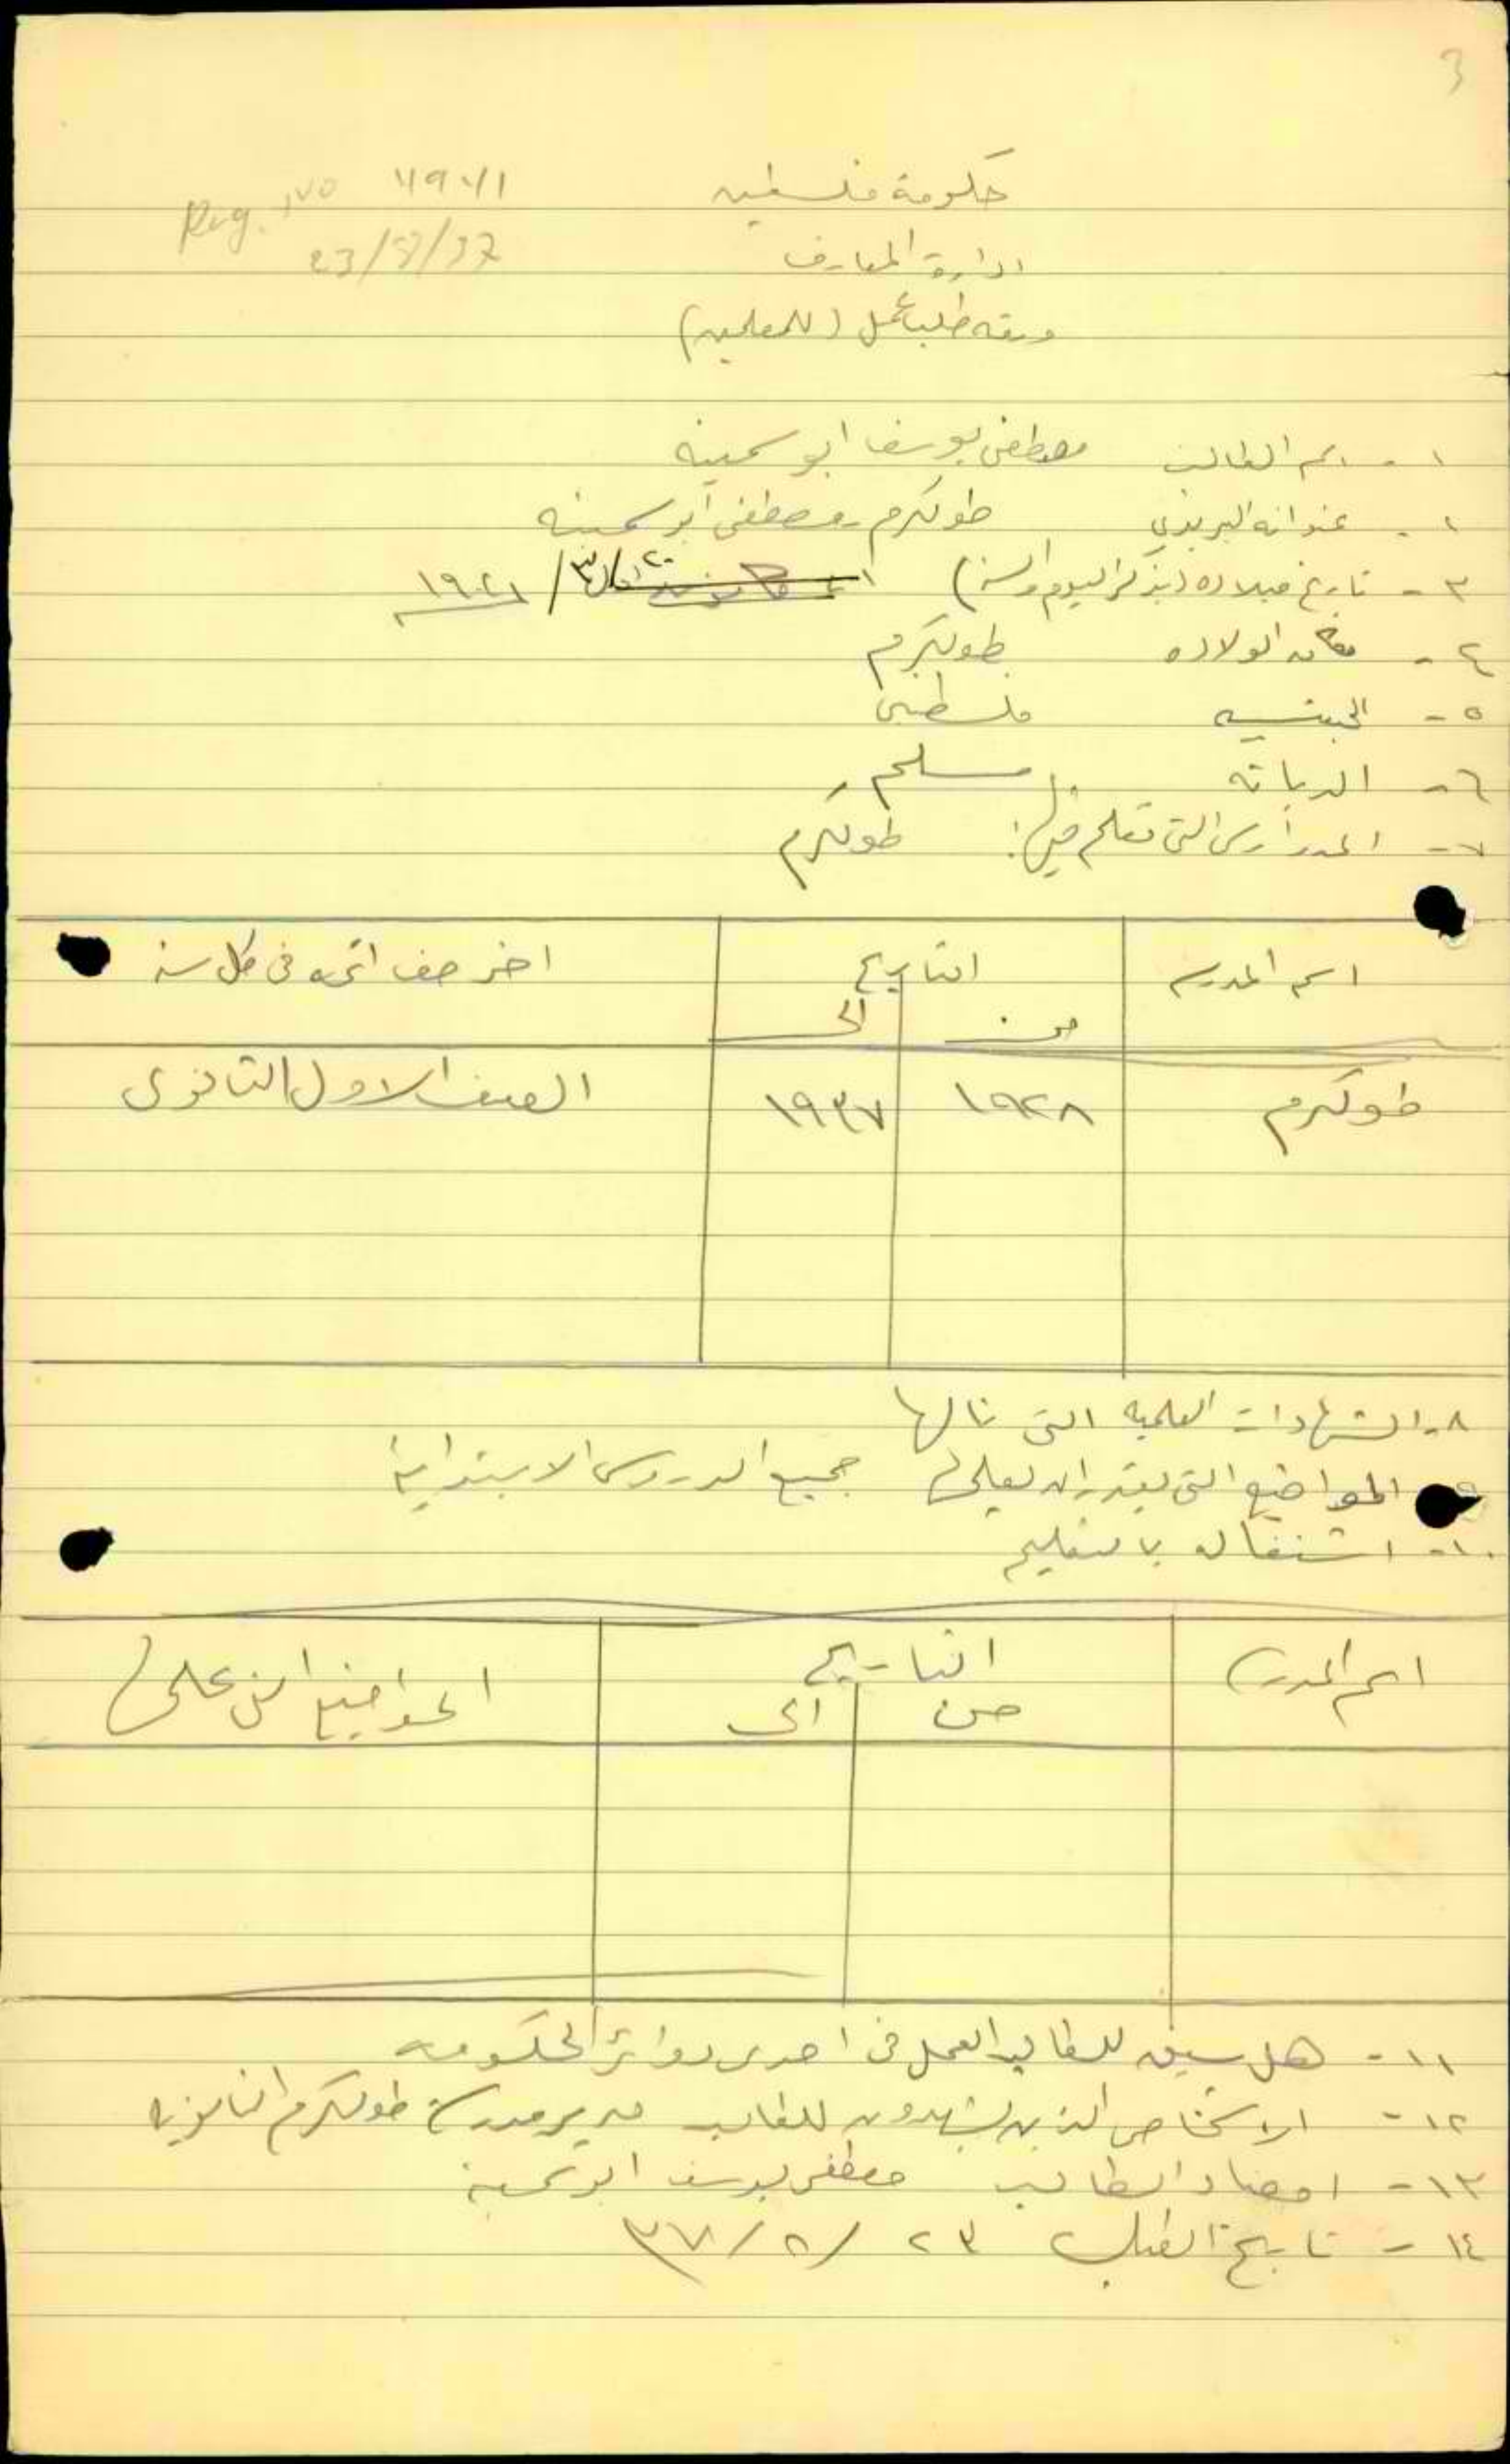 3
Reg. No 11971
23/8/37
حكومة فلسطين
ادارة المعارف
ورقة طلب عمل (للمعلمين)
١ - اسم الطالب مصطفى يوسف ابو سمينه
٢ - عنوانه البريدي طولكرم مصطفى ابو سمينه
٣ - تاريخ ميلاده (يذكر اليوم والسنه) ١٩٢١
٤ - مكان الولاده طولكرم
٥ - الجنسيه فلسطيني
٦ - الديانه مسلم
٧ - المدارس التي تعلم فيها: طولكرم
اسم المدرسه التاريخ اخر صف اتمه في كل سنه
من الى
طولكرم ١٩٢٨ ١٩٣٧ الصف الاول الثانوي
٨ - الشهادات العلميه التي نالها
٩ - المواضيع التي يقدر ان يعلمها جميع الدروس الابتدائية
١٠ - اشتغاله بالتعليم
اسم المدرسة التاريخ المواضيع التي علمها
من الى
١١ - هل سبق للطالب العمل في احدى دوائر الحكومه
١٢ - الاشخاص الذين يشهدون للطالب مدير مدرسة طولكرم الثانويه
١٣ - امضاء الطالب مصطفى يوسف ابو سمينه
١٤ - تاريخ الطلب ٢٣ / ٨ / ٣٧